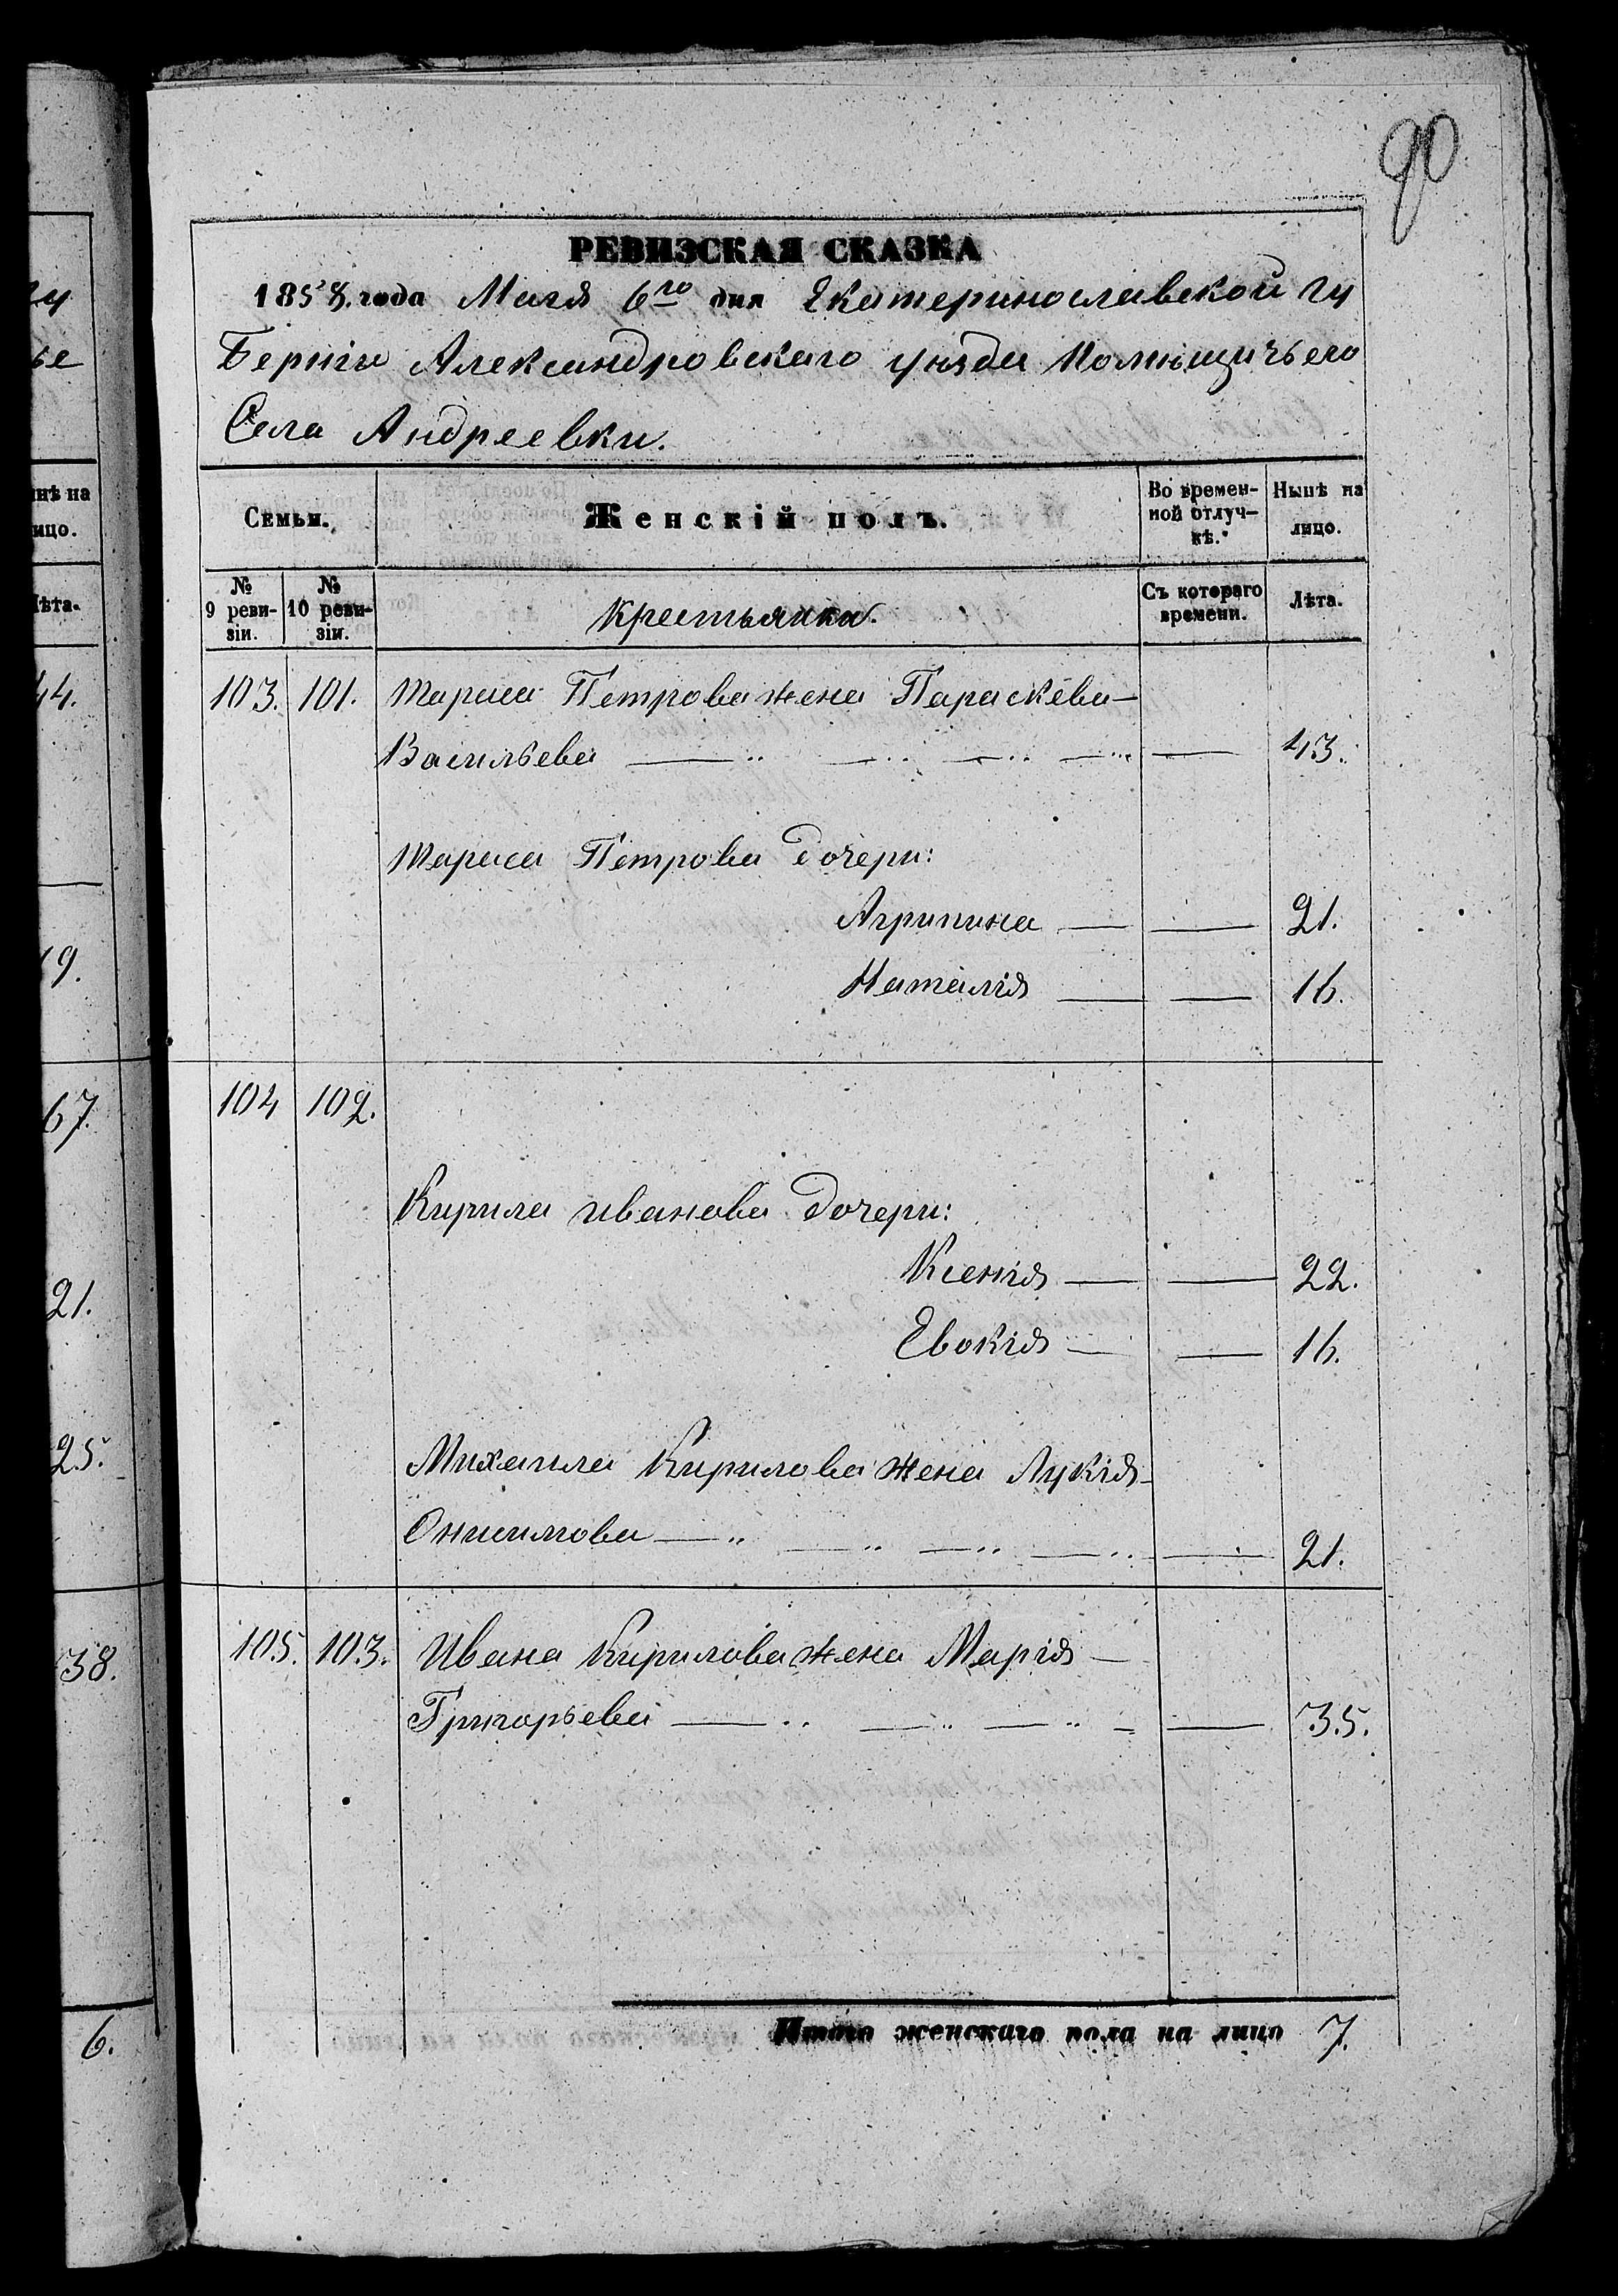 90
РЕВИЗСКАЯ СКАЗКА
1858. года Мая 6го дня Екатеринославской гу
берніи Александровскаго уѣзда Помѣщичьего
Села Андреевки.
Семьи.
Женскій полъ.
Во времен-
ной отлуч-
кѣ.
Нынѣ на
лицо.
№
9 реви-
зіи.
№
10 реви-
зіи.
Крестьянки.
Съ котораго
времени.
Лѣта.
103. 101. Тараса Петрова жена Параскева
Васильева 43.
Тараса Петрова дочери:
Агрипина 21.
Наталія 16.
104 102.
Кирила иванова дочери:
Ксенія 22.
Евокія 16.
Михаила Кирилова жена Лукія
Онисимова 21.
105. 103. Ивана Кирилова жена Марія
Григорьева 35.
Итого женскаго пола на лицо 7.
гу
ье
нѣ на
ицо.
ѣта.
44.
19.
67.
21.
25.
38.
6.